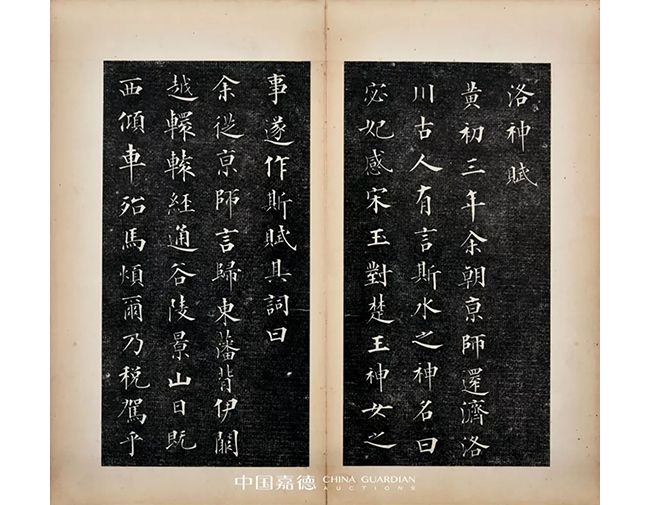 洛神賦
黃初三年余朝亰師還濟洛
川古人有言斯水之神名曰
宓妃感宋玉對楚王神女之
事遂作斯賦其詞曰
余從亰師言歸東藩背伊闕
越轘轅經通谷陵景山日既
西傾車殆馬煩爾乃稅駕乎
中国嘉德 CHINA GUARDIAN
AUCTIONS